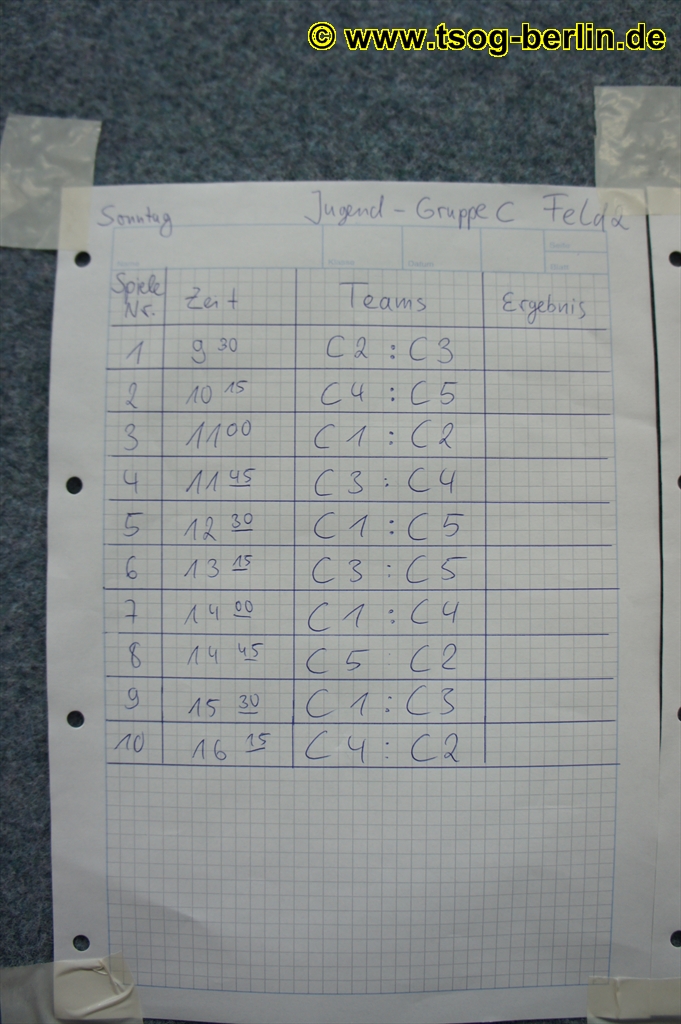 © www.tsog-berlin.de
Sonntag Jugend - Gruppe C Feld 2
Spiele Nr. Zeit Teams Ergebnis
1 9 30 C2 : C3
2 10 15 C4 : C5
3 11 00 C1 : C2
4 11 45 C3 : C4
5 12 30 C1 : C5
6 13 15 C3 : C5
7 14 00 C1 : C4
8 14 45 C5 C2
9 15 30 C1 : C3
10 16 15 C4 : C2